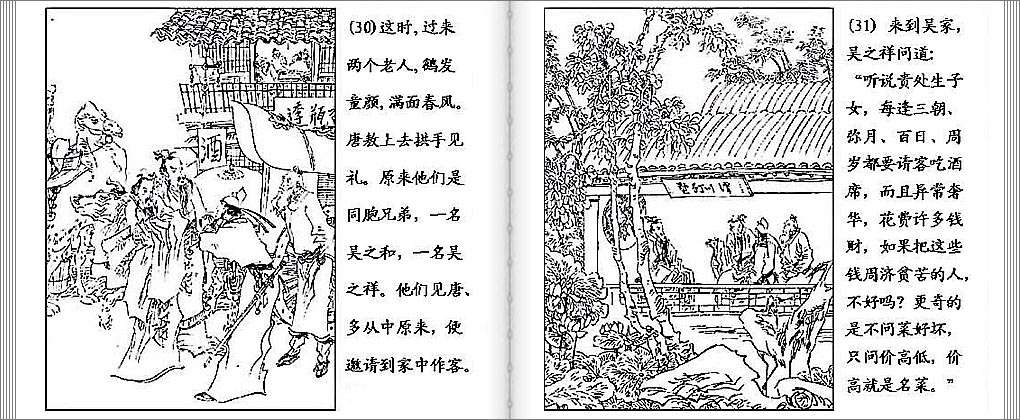 (30)这时,过来
两个老人,鹤发
童颜,满面春风。
唐敖上去拱手见
礼。原来他们是
同胞兄弟,一名
吴之和,一名吴
之祥。他们见唐、
多从中原来,便
邀请到家中作客。
酒
(31) 来到吴家,
吴之祥问道:
“听说贵处生子
女,每逢三朝、
弥月、百日、周
岁都要请客吃酒
席,而且异常奢
华,花费许多钱
财,如果把这些
钱周济贫苦的人,
不好吗?更奇的
是不问菜好坏,
只问价高低,价
高就是名菜。”